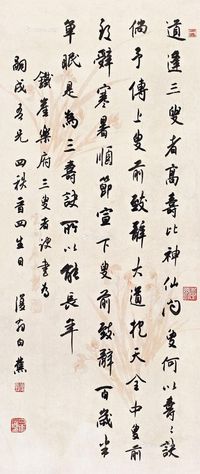 道逢三叟者高壽比神仙問叟何以壽〻訣
倘予傳上叟前致辭大道抱天全中叟前
致辭寒暑順節宣下叟前致辭百歲半
單眠是為三壽訣所以能長年
鐵崖樂府三叟者訣書為
嗣成吾兄四秩晉四生日 復翁白蕉